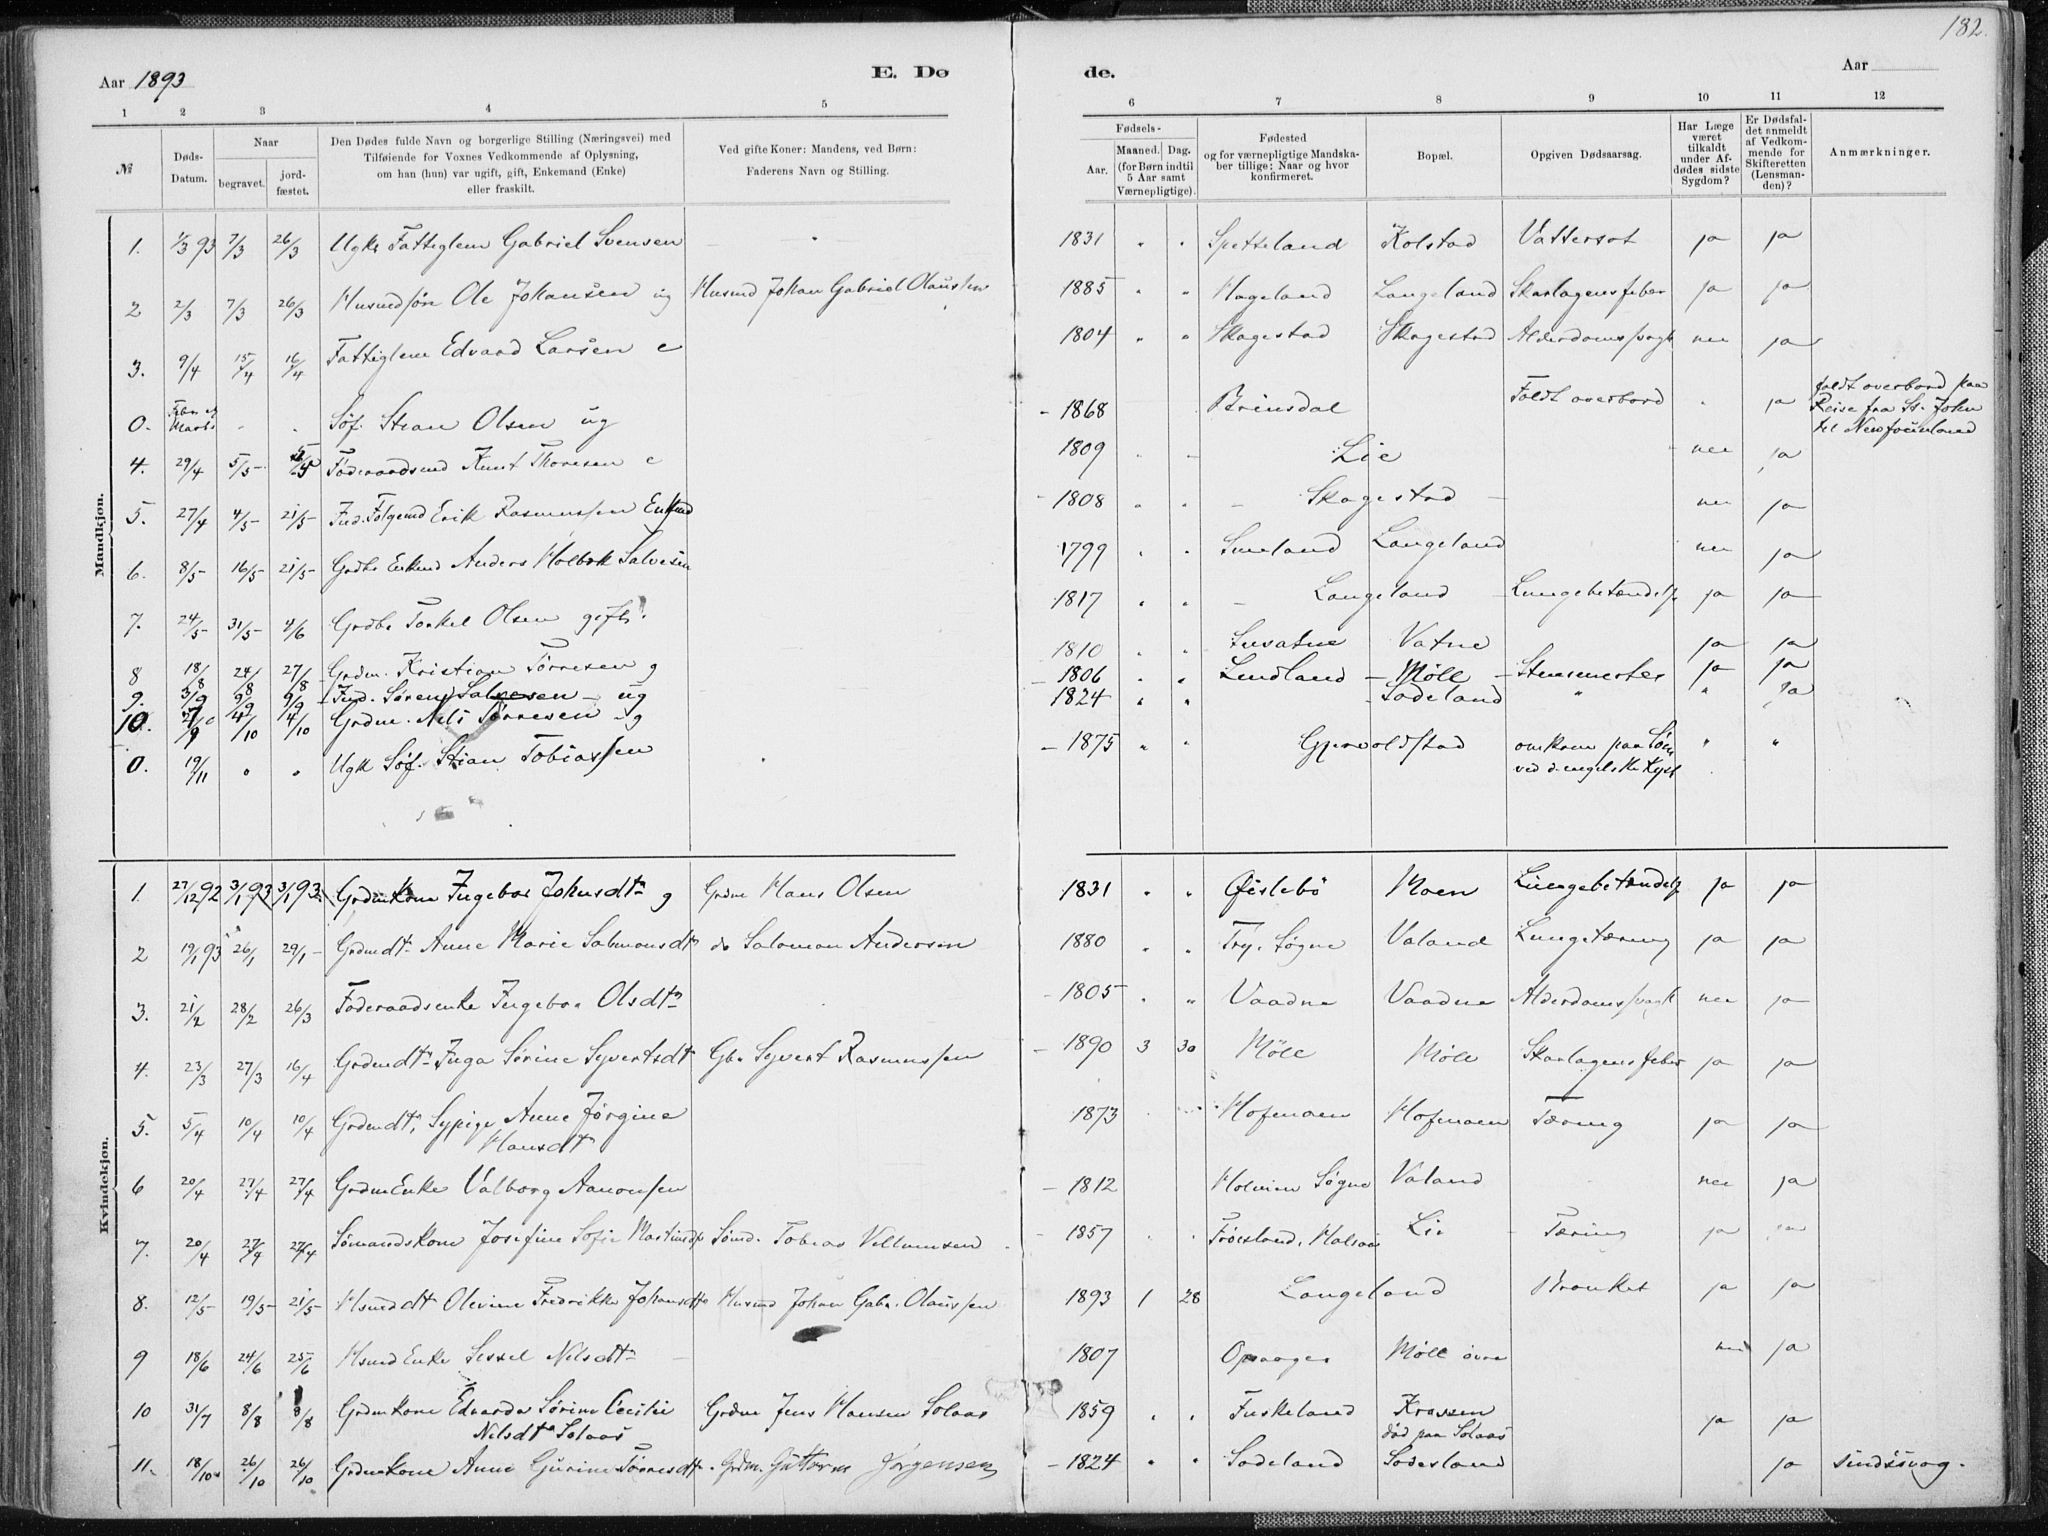 182.
Aar 1893
E. Dø
de.
Aar
1 2 3 4 5 6 7 8 9 10 11 12
№
Døds-Datum.
Naar
begravet.
jord-fæstet.
Den Dødes fulde Navn og borgerlige Stilling (Næringsvei) med
Tilføiende for Voxnes Vedkommende af Oplysning,
om han (hun) var ugift, gift, Enkemand (Enke)
eller fraskilt.
Ved gifte Koner: Mandens, ved Børn:
Faderens Navn og Stilling.
Fødsels-
Aar.
Maaned. Dag.
(for Børn indtil
5 Aar samt
Værnepligtige).
Fødested
og for værnepligtige Mandska-
ber tillige: Naar og hvor
konfirmeret.
Bopæl.
Opgiven Dødsaarsag.
Har Læge
været
tilkaldt
under Af-
dødes sidste
Sygdom?
Er Dødsfal-
det anmeldt
af Vedkom-
mende for
Skifteretten
(Lensman-
den)?
Anmærkninger.
Mandkjøn.
1. 1/3 93 7/3 26/3 Ugke Fattiglem Gabriel Svensen 1831 " " Spetteland Kolstad Vattersot ja ja
2 2/3 7/3 26/3 Husmdsøn Ole Johansen ug Husmd Johan Gabriel Olaussen 1885 " " Hageland Langeland Skarlagensfeber ja ja
3. 9/4 15/4 16/4 Fattiglem Edvard Larsen e 1804 " " Skagestad Skagestad Alderdomssvagh nei ja
0. Febr og Marts Søf. Stian Olsen ug 1868 Brinsdal Faldt overbord ja faldt overbord paa
Reise fra St. John
til Newfoundland
4. 29/4 5/5 Føderaadsmd Knut Thoresen e 1809 Lie nei ja
5. 27/4 4/5 21/5 Ind. Folgemd Erik Rasmussen Enkemd 1808 Skagestad nei ja
6. 8/5 16/5 21/5 Grdbr Enkemd Anders Holbek Salvesen 1799 Langeland nei ja
7. 24/5 31/5 4/6 Grdbr Torkel Olsen gift. 1817 Langeland Lungebetændels ja ja
8 18/8 24/8 27/8 Grdm. Kristian Tørresen g 1810 Vatne ja ja
9. 3/9 9/9 9/9 Ind. Søren Salvesen ug 1806 Lindland Möll ja ja
10. 4/10 4/10 Grdm. Nels Tørresen g 1824 Sodeland " " ja
0. 19/11 " " Ugk Søf. Stian Tobiassen 1875 " " Gjervoldstad omkom paa Søen
ved d. engelske Kyst " "
Kvindekjøn.
1. 27/12 92 3/1 93 3/1 93 Grdmkone Ingebor Johnsdtr g Grdm Hans Olsen 1831 " " Øislebö Moen Lungebetændels ja ja
2 19/1 93 26/1 29/1 Grdmdtr Anne Marie Salmonsdtr do Salomon Andersen 1880 " " Try, Søgne Valand Lungetæring ja ja
3. 21/2 28/2 26/3 Føderaadsenke Ingebor Olsdtr 1805 " " Vaadne Vaadne Alderdomssvagh nei ja
4. 23/3 27/3 16/4 Grdmdtr Inga Sørine Syvertsdtr Gbr Syvert Rasmussen 1890 3 30 Möll Möll Skarlagensfeber ja ja
5. 5/4 10/4 10/4 Grdmdtr, Sypige Anne Jørgine
Hansdtr 1873 Hofmoen Hofmoen Tæring ja ja
6 20/4 27/4 27/4 Grdm Enke Valborg Aanonsen 1812 Søgne Valand nei ja
7. 20/4 27/4 27/4 Sømandskone Josefine Sofie Martinsdtr Sømd. Tobias Villumsen 1857 Lie Tæring ja
8. 12/5 19/5 21/5 Hsmddtr Olevine Fredrikke Johansdtr Husmd Johan Gabr. Olaussen 1893 1 28 Langeland Bronket ja ja
9 18/6 24/6 25/6 Hsmd Enke Sissel Nilsdtr 1807 Möll övre nei ja
10 31/7 8/8 8/8 Grdmkone Edvarda Sørine Cecilie
Nelsdtr Solaas Grdm Jens Hansen Solaas 1859 " " Fuskeland Krossen
död paa Solaas ja ja
11. 18/10 26/10 26/10 Grdmkone Anne Gurine Tørresdtr. Grdm. Guttorm Jørgensen 1824 " " Sodeland Sodeland ja sindssvag.